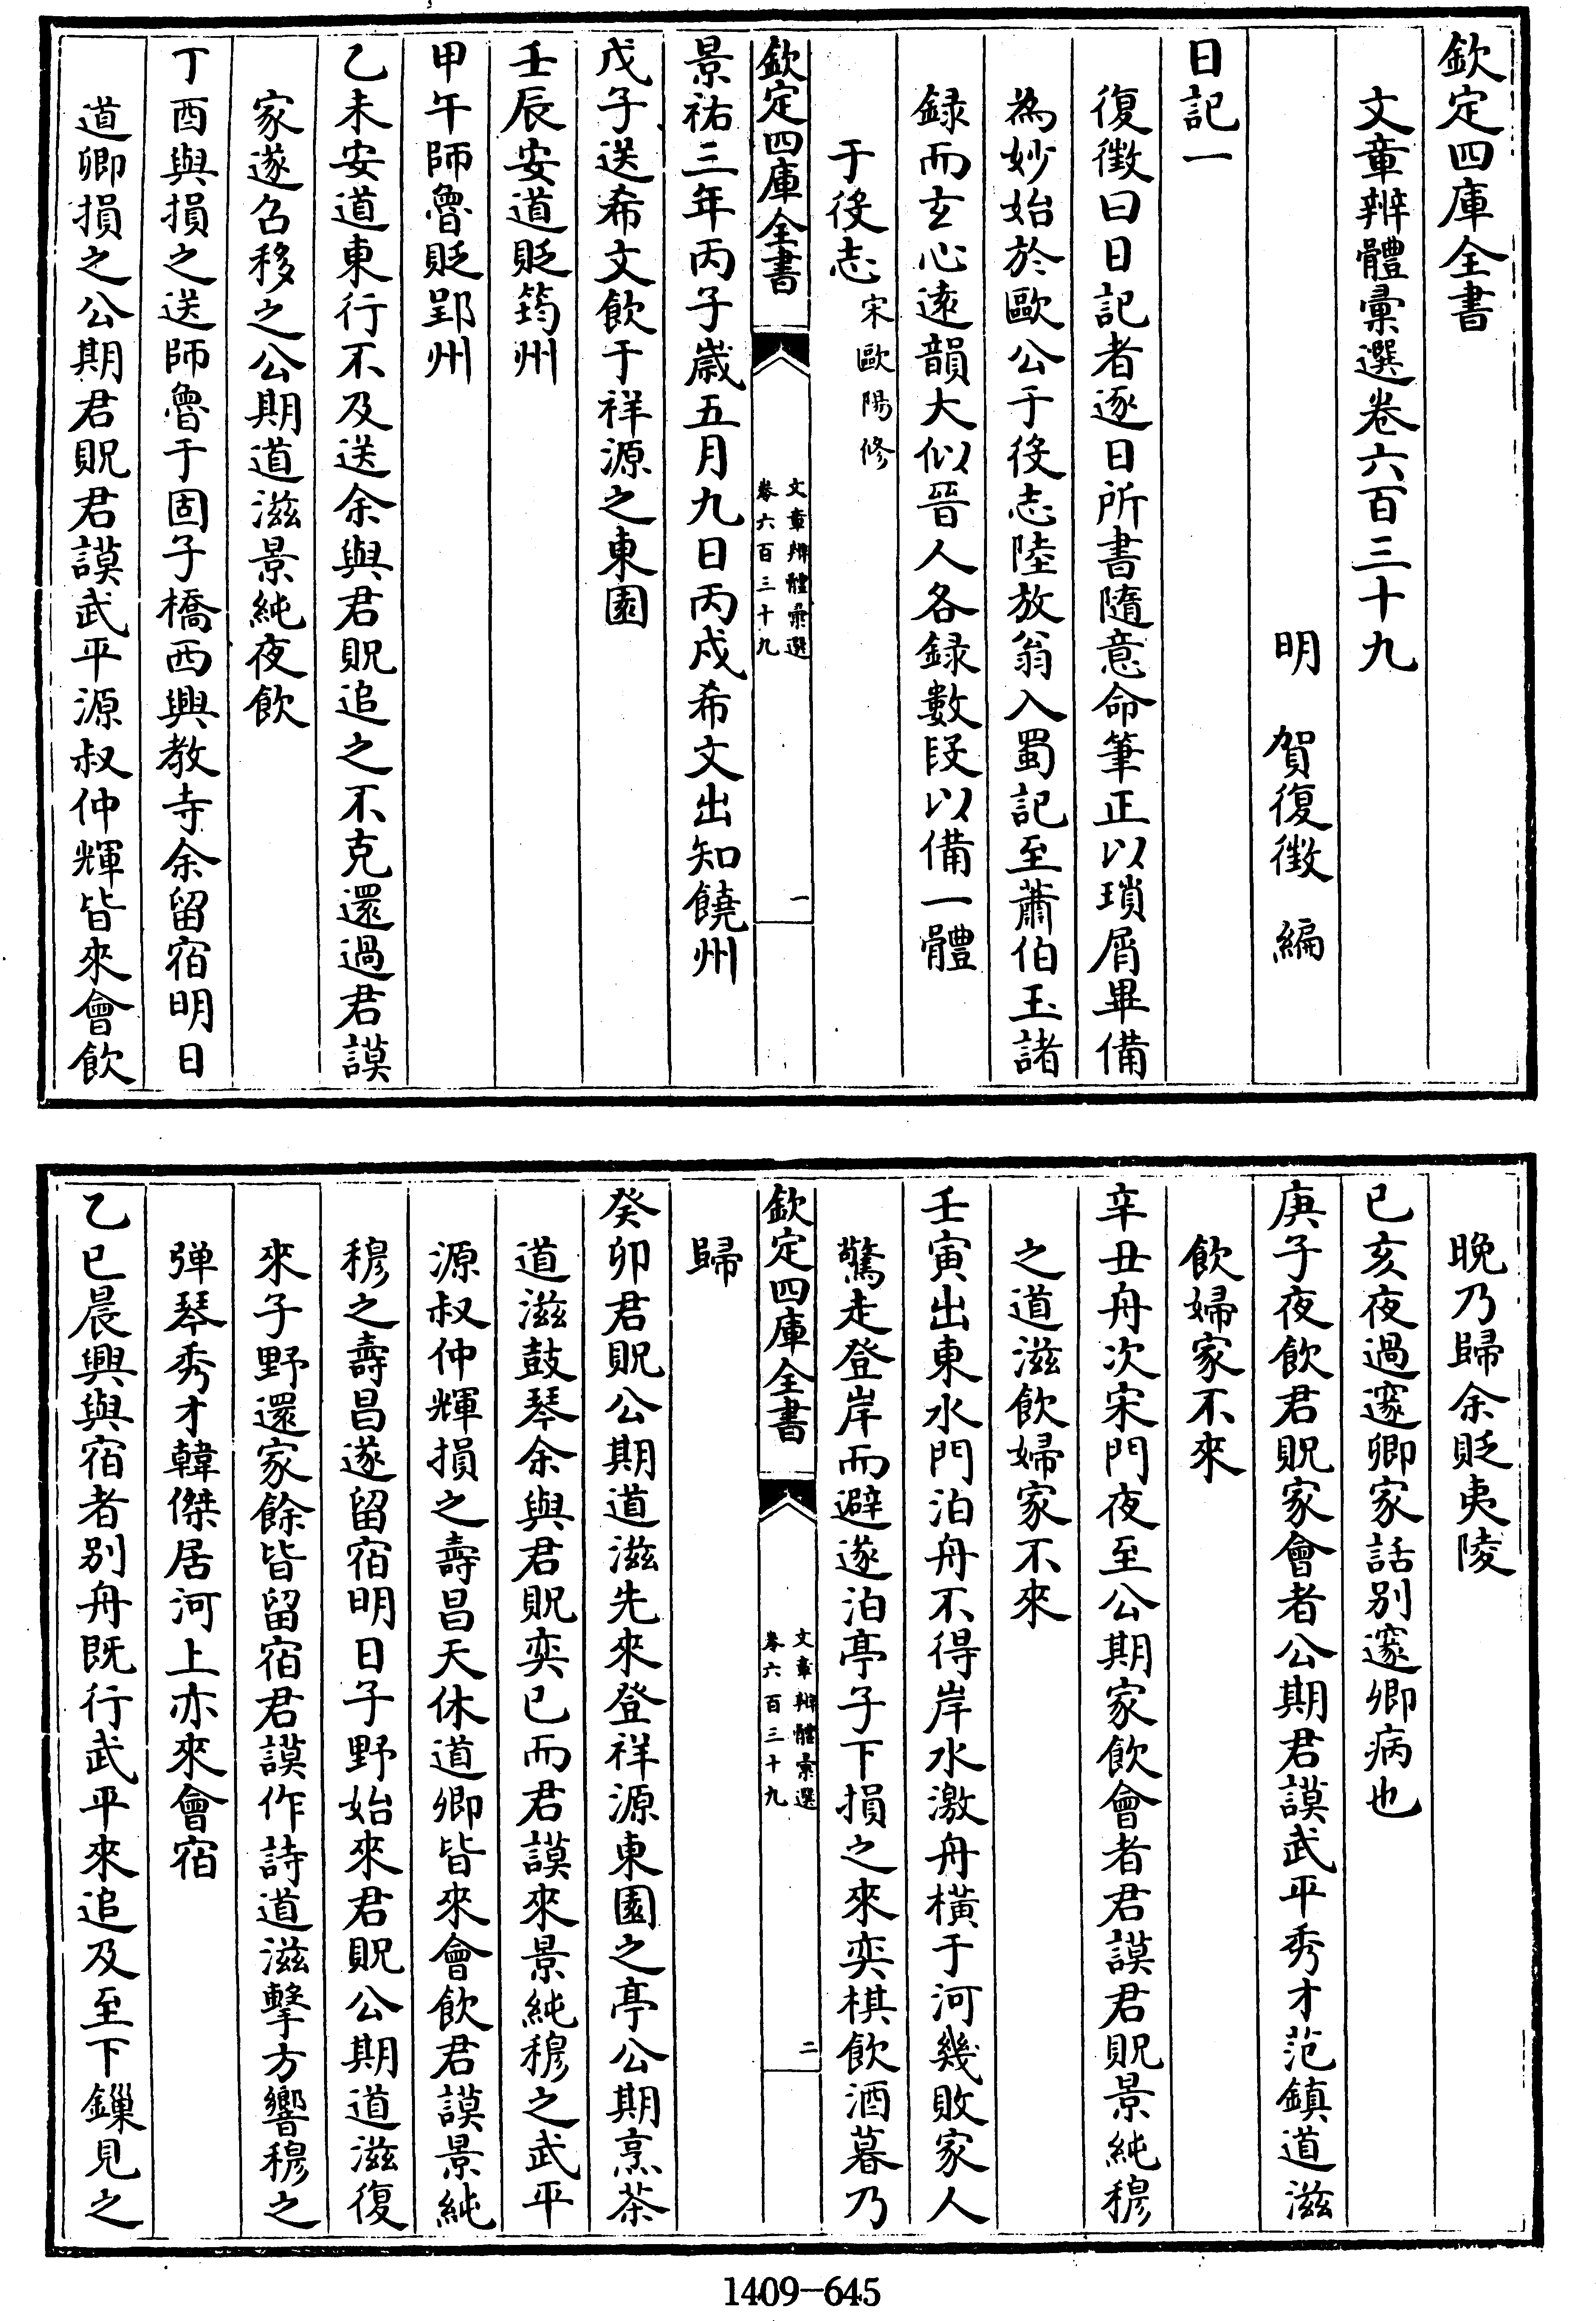 欽定四庫全書
文章辨體彙選卷六百三十九
明　賀復徵　編
日記一
復徵曰日記者逐日所書隨意命筆正以瑣屑畢備
為妙始於歐公于役志陸放翁入蜀記至蕭伯玉諸
錄而玄心遠韻大似晉人各錄數段以備一體
于役志宋歐陽修
欽定四庫全書
文章辨體彙選
卷六百三十九
一
景祐三年丙子歲五月九日丙戌希文出知饒州
戊子送希文飲于祥源之東園
壬辰安道貶筠州
甲午師魯貶郢州
乙未安道東行不及送余與君貺追之不克還過君謨
家遂召移之公期道滋景純夜飲
丁酉與損之送師魯于固子橋西興教寺余留宿明日
道卿損之公期君貺君謨武平源叔仲輝皆來會飲
晚乃歸余貶夷陵
已亥夜過邃卿家話別邃卿病也
庚子夜飲君貺家會者公期君謨武平秀才范鎮道滋
飲婦家不來
辛丑舟次宋門夜至公期家飲會者君謨君貺景純穆
之道滋飲婦家不來
壬寅出東水門泊舟不得岸水激舟橫于河幾敗家人
驚走登岸而避遂泊亭子下損之來奕棋飲酒暮乃
欽定四庫全書
文章辨體彙選
卷六百三十九
二
歸
癸卯君貺公期道滋先來登祥源東園之亭公期烹茶
道滋鼓琴余與君貺奕已而君謨來景純穆之武平
源叔仲輝損之壽昌天休道卿皆來會飲君謨景純
穆之壽昌遂留宿明日子野始來君貺公期道滋復
來子野還家餘皆留宿君謨作詩道滋擊方響穆之
弹琴秀才韓傑居河上亦來會宿
乙巳晨興與宿者別舟既行武平來追及至下鏁見之
1409-645